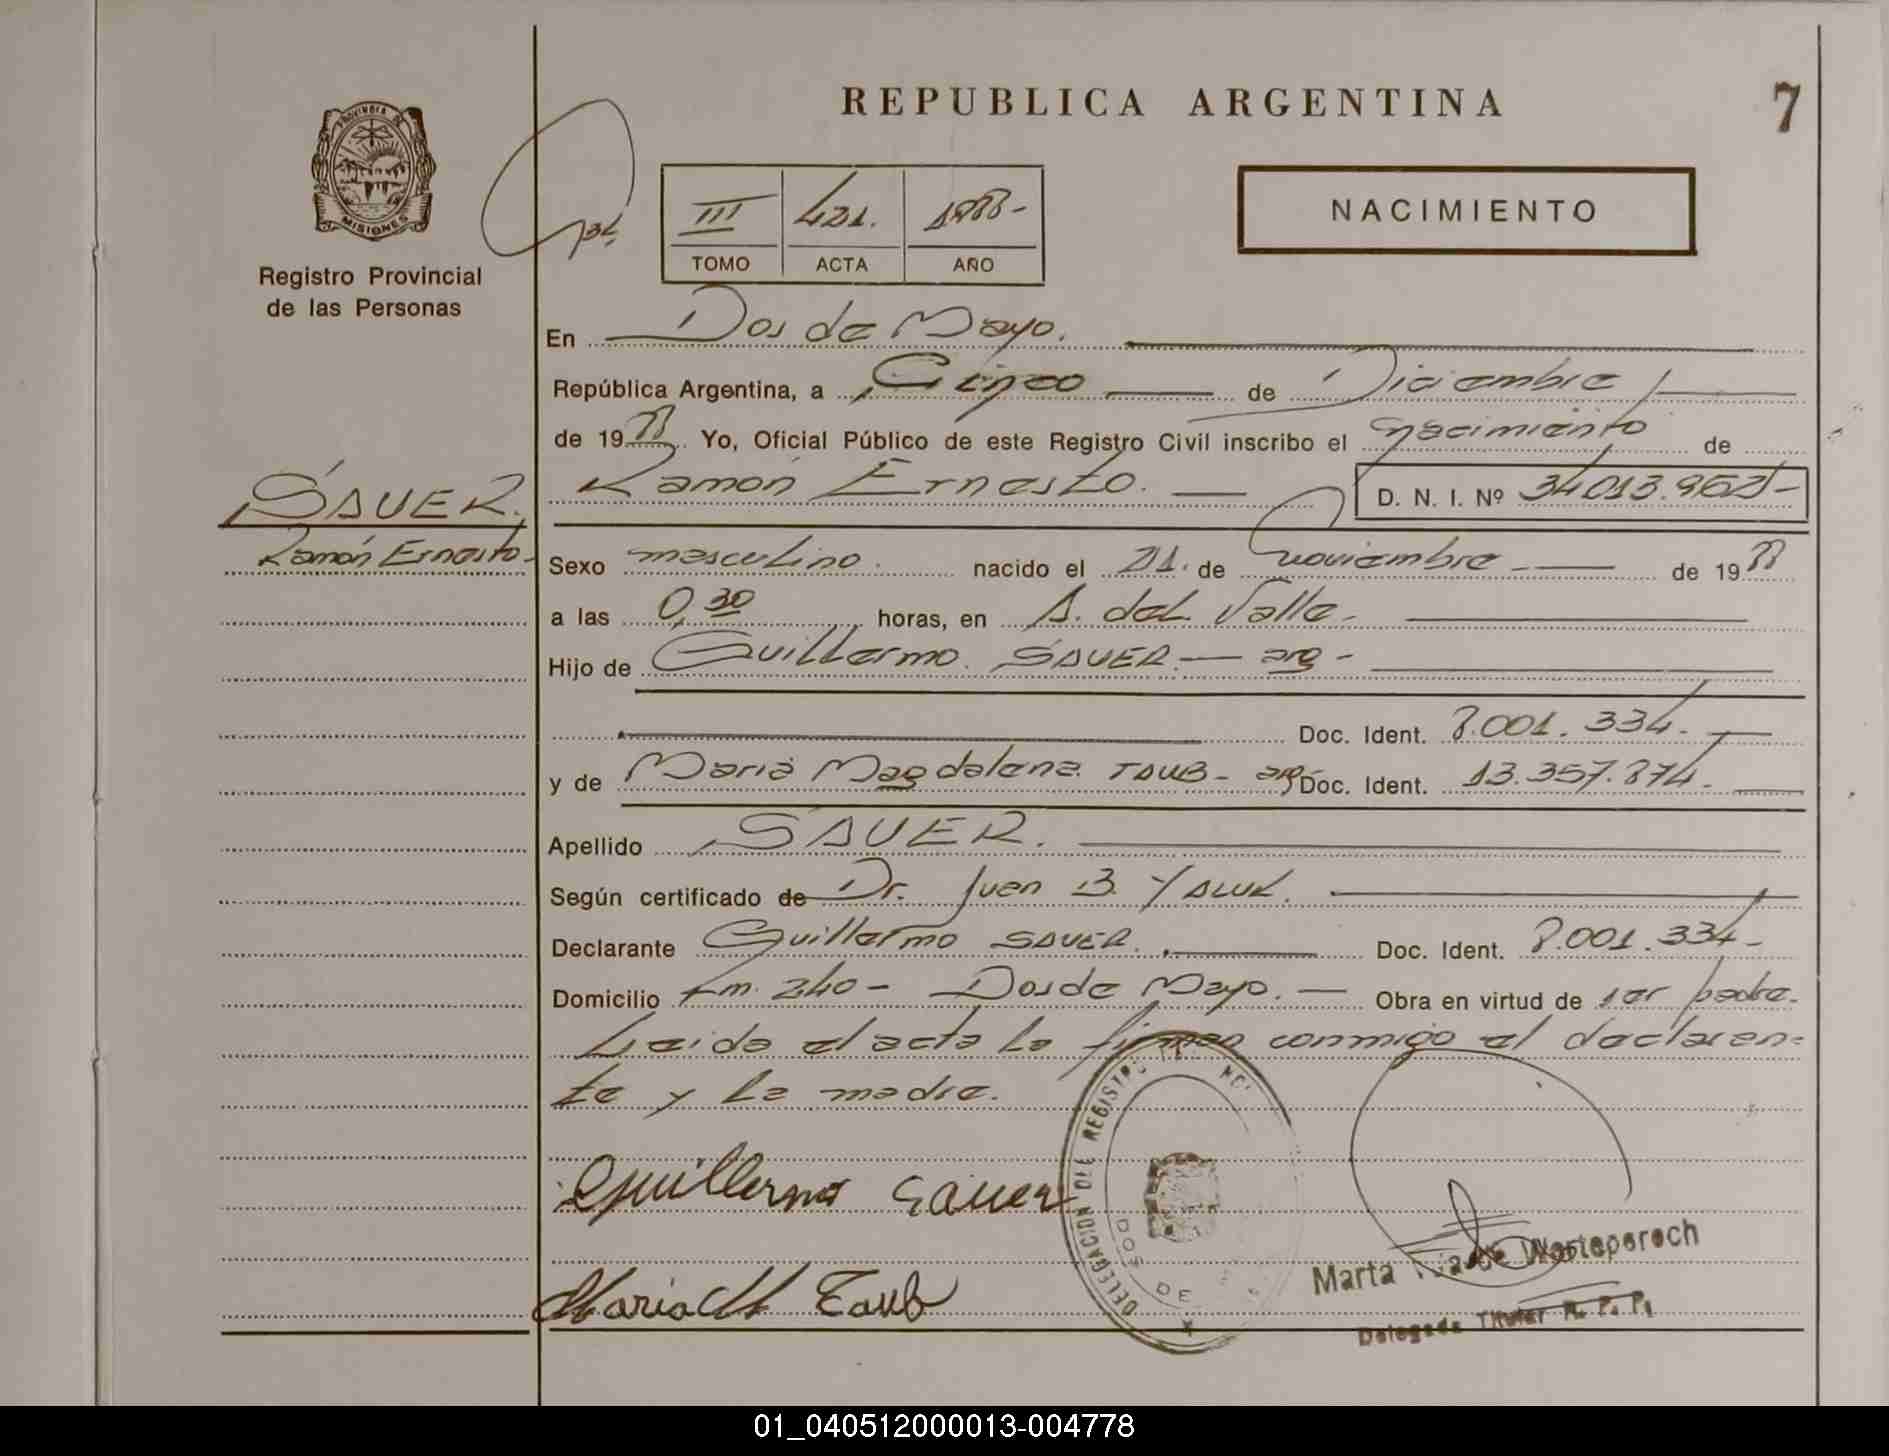 REPUBLICA ARGENTINA
7
PROVINCIA DE
MISIONES
Registro Provincial
de las Personas
III 421. 1988-
TOMO ACTA AÑO
NACIMIENTO
En Dos de Mayo.
República Argentina, a Cinco de Diciembre
de 1988 Yo, Oficial Público de este Registro Civil inscribo el nacimiento de
SAUER.
Ramón Ernesto. D. N. I. Nº 34013.962-
Ramón Ernesto-
Sexo masculino. nacido el 21. de noviembre - de 1988
a las 0,30 horas, en A. del Valle-
Hijo de Guillermo. SAUER.- arg-
Doc. Ident. 8.001.334.-
y de Maria Magdalena TAUB- arg- Doc. Ident. 13.357.874.-
Apellido SAUER.
Según certificado de Dr. Juan B. YALUK.
Declarante Guillermo SAUER. Doc. Ident. 8.001.334-
Domicilio Km. 240- Dos de Mayo.- Obra en virtud de ser padre.
Leida el acta la firman conmigo el declaran-
te y la madre.
DELEGACION DEL REGISTRO
DOS DE
Guillermo Sauer
Marta de Worteperech
Maria M Taub
Delegada Titular R. P. P.
01_040512000013-004778